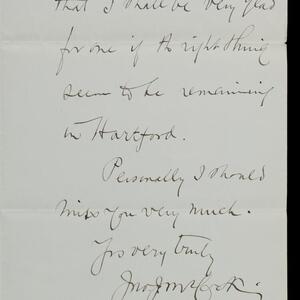 that I shall be very glad
for one if the right thing
seem to be remaining
in Hartford.
Personally I should
miss you very much.
Yrs very truly
Jno. J. McCook